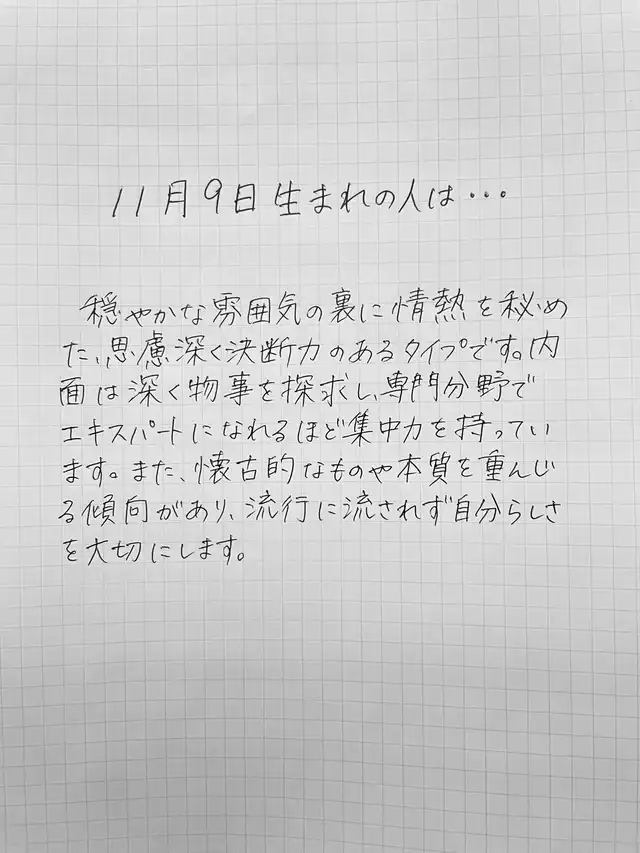 11月9日生まれの人は…
穏やかな雰囲気の裏に情熱を秘め
た、思慮深く決断力のあるタイプです。内
面は深く物事を探求し、専門分野で
エキスパートになれるほど集中力を持ってい
ます。また、懐古的なものや本質を重んじ
る傾向があり、流行に流されず自分らしさ
を大切にします。